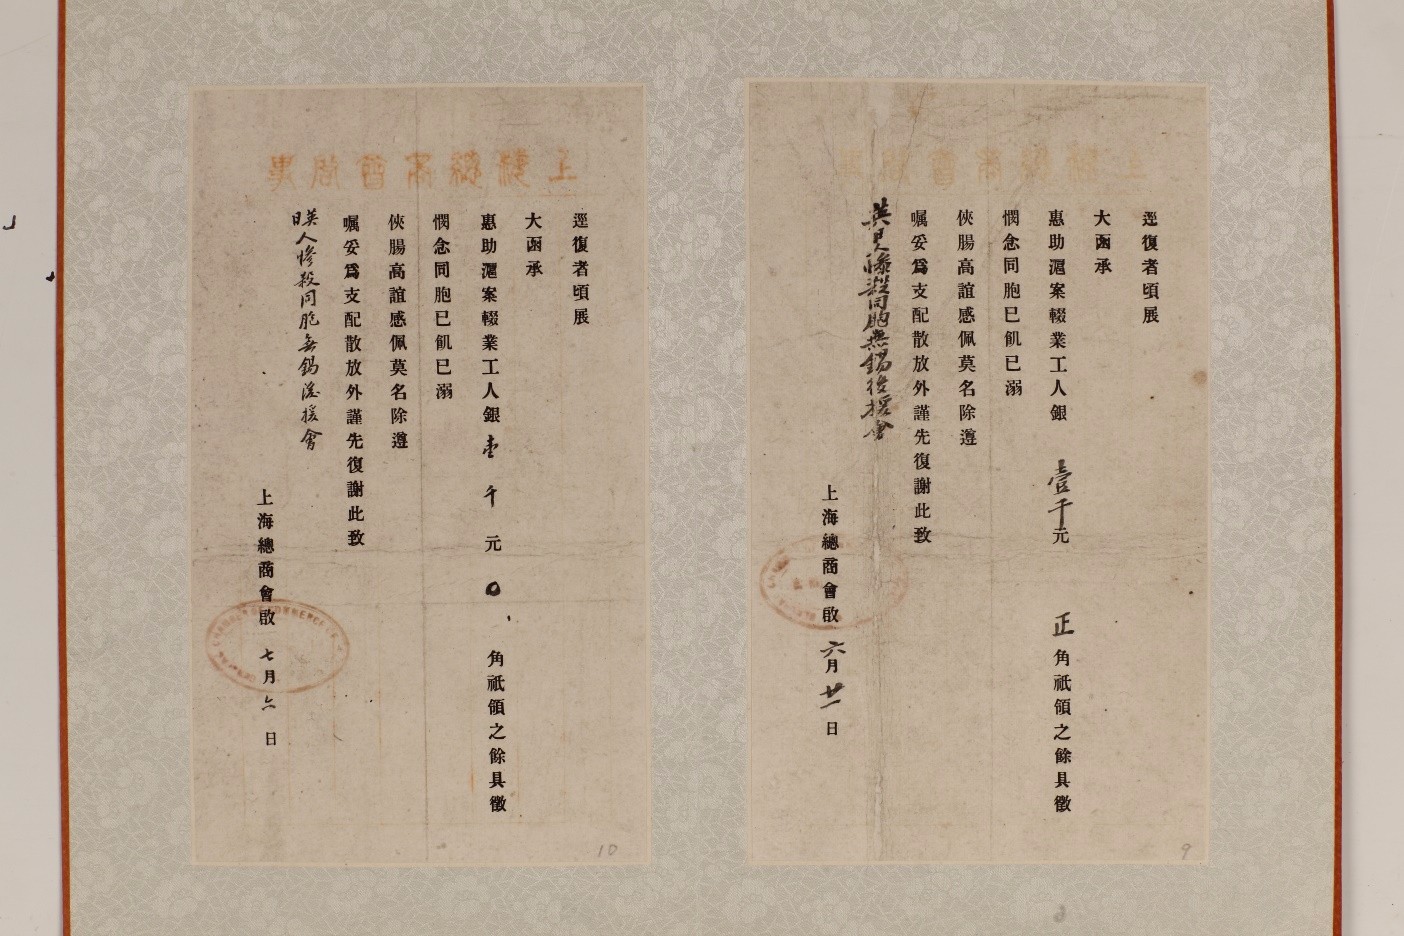 逕復者頃展
大函承
惠助滬案輟業工人銀壹千元正角祇領之餘具徵
憫念同胞已飢已溺
俠腸高誼感佩莫名除遵
囑妥為支配散放外謹先復謝此致
英日慘殺同胞無錫後援會
上海總商會啟 六月廿一日
9
上海總商會啟事
逕復者頃展
大函承
惠助滬案輟業工人銀壹千元0角祇領之餘具徵
憫念同胞已飢已溺
俠腸高誼感佩莫名除遵
囑妥為支配散放外謹先復謝此致
英日人慘殺同胞無錫後援會
上海總商會啟 七月六日
CHAMBER OF COMMERCE
10